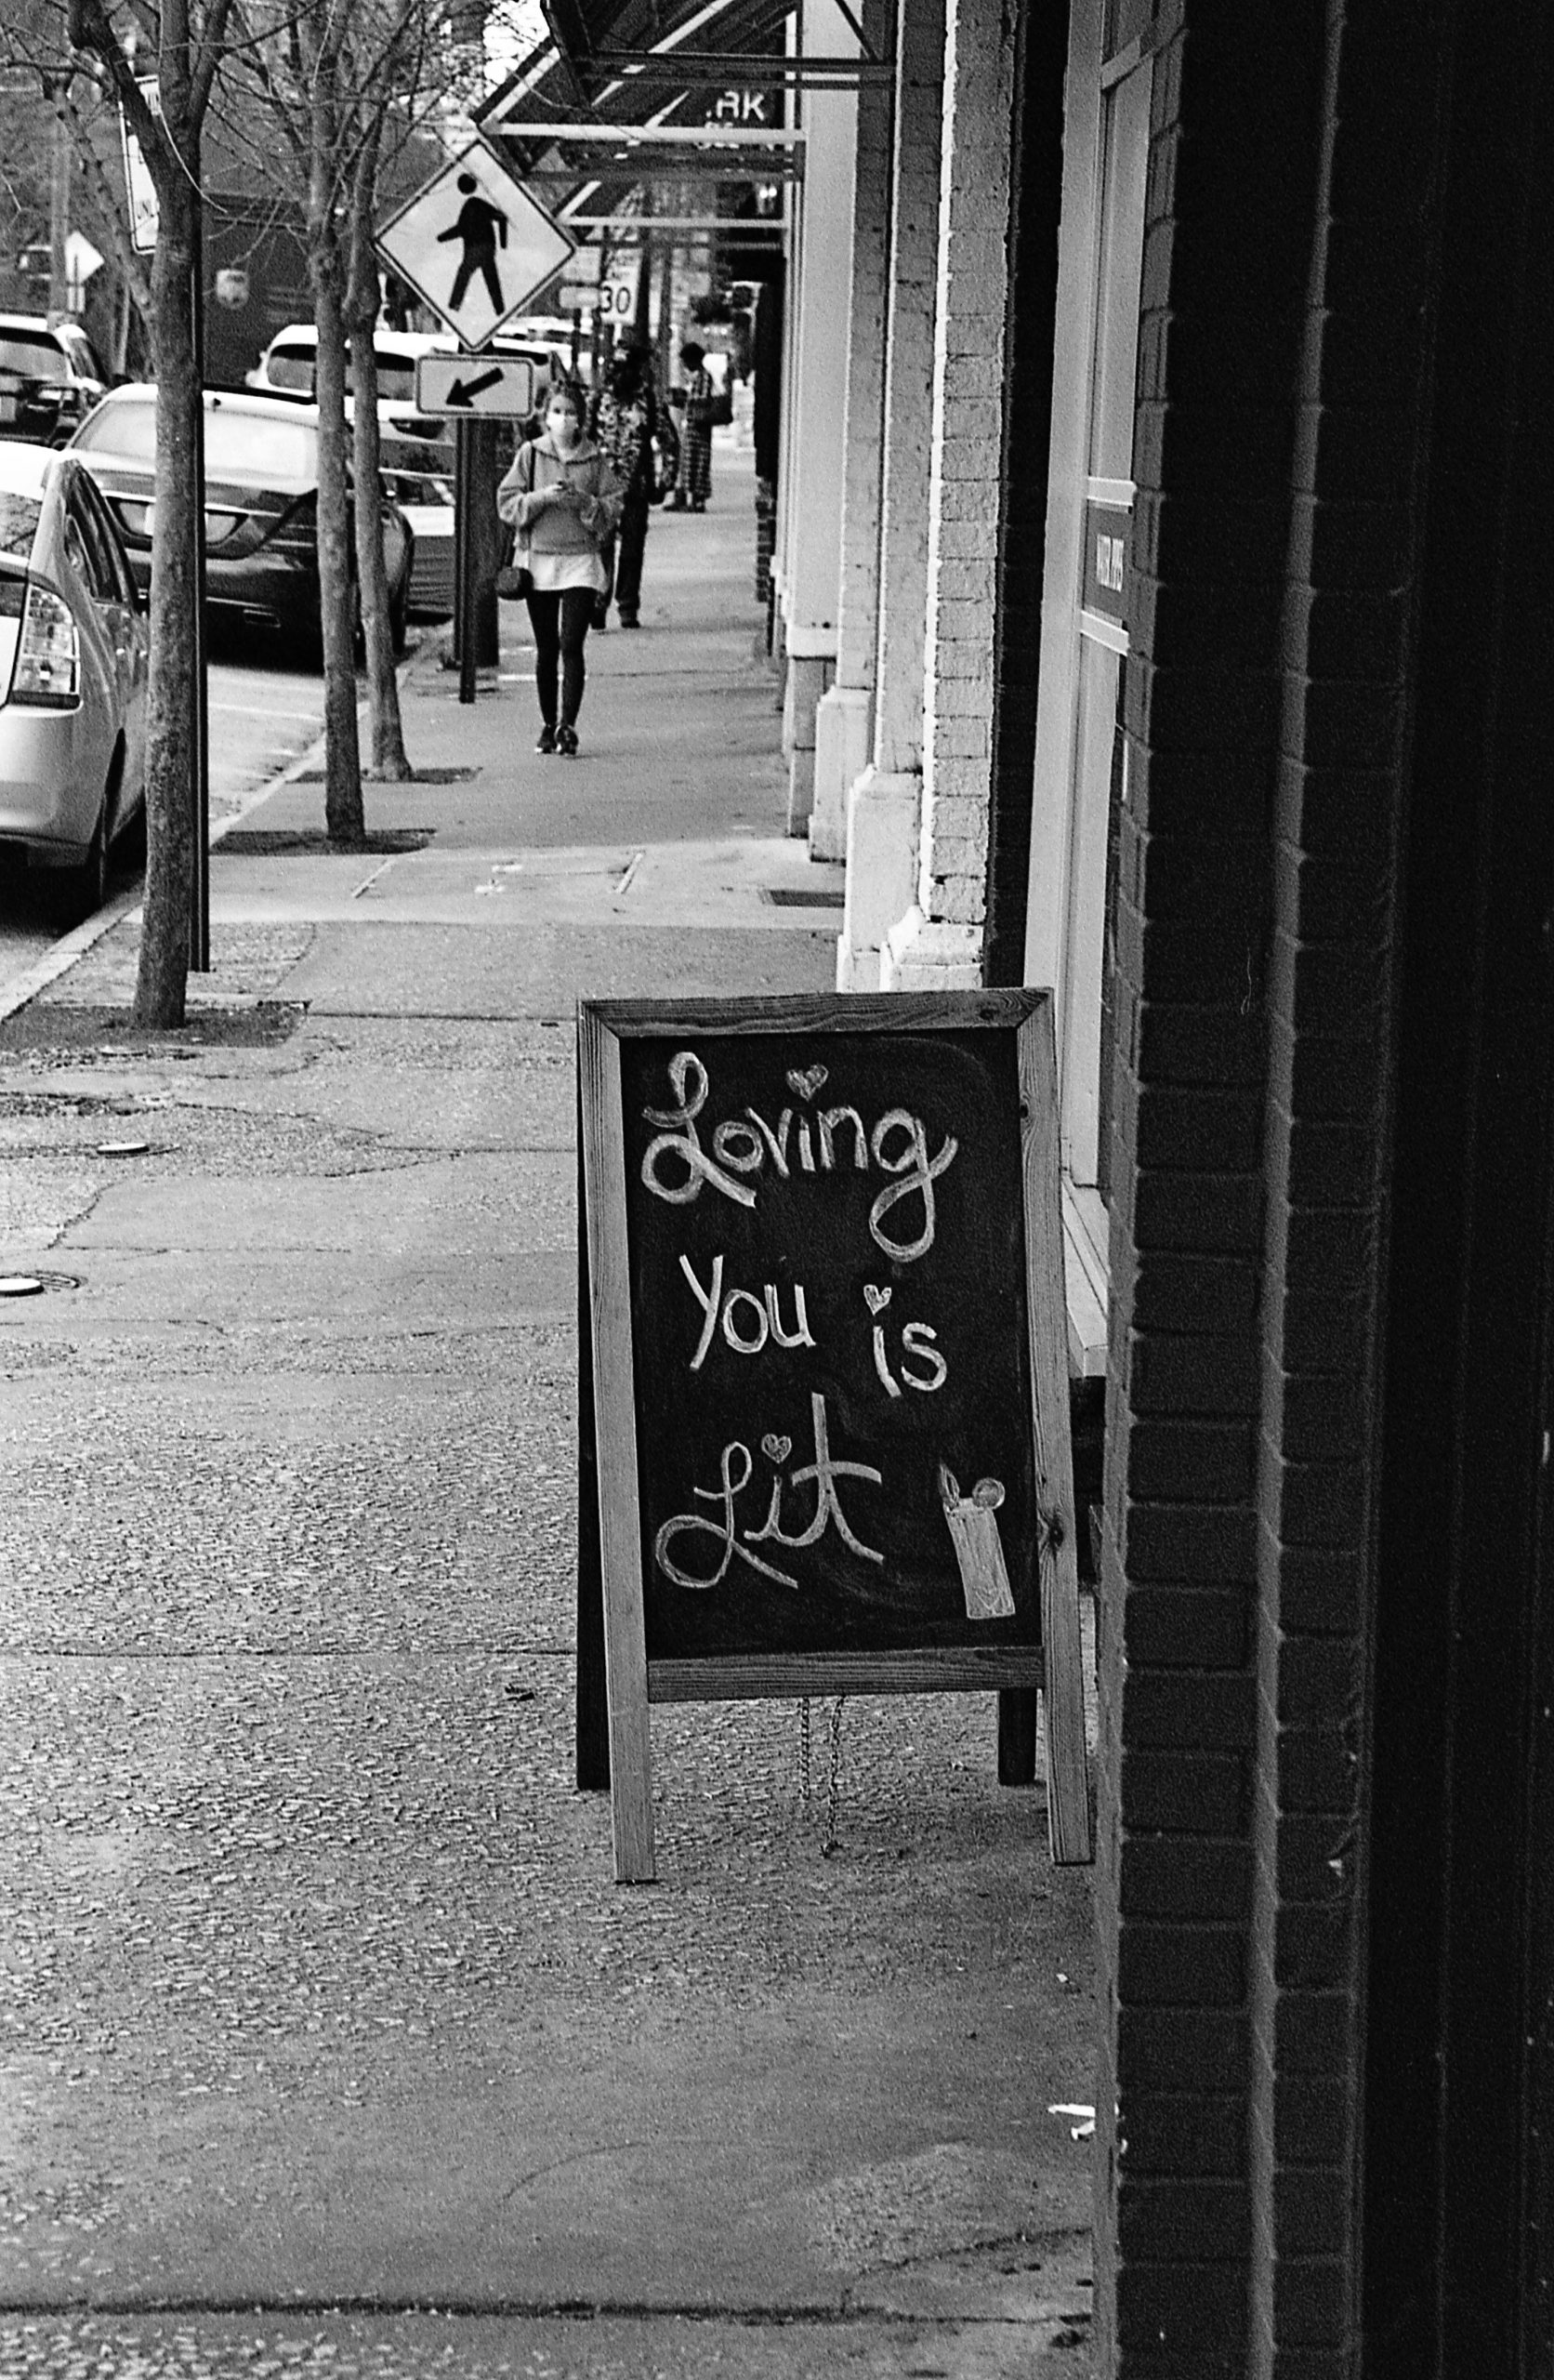 RK
30
Loving
You is
Lit